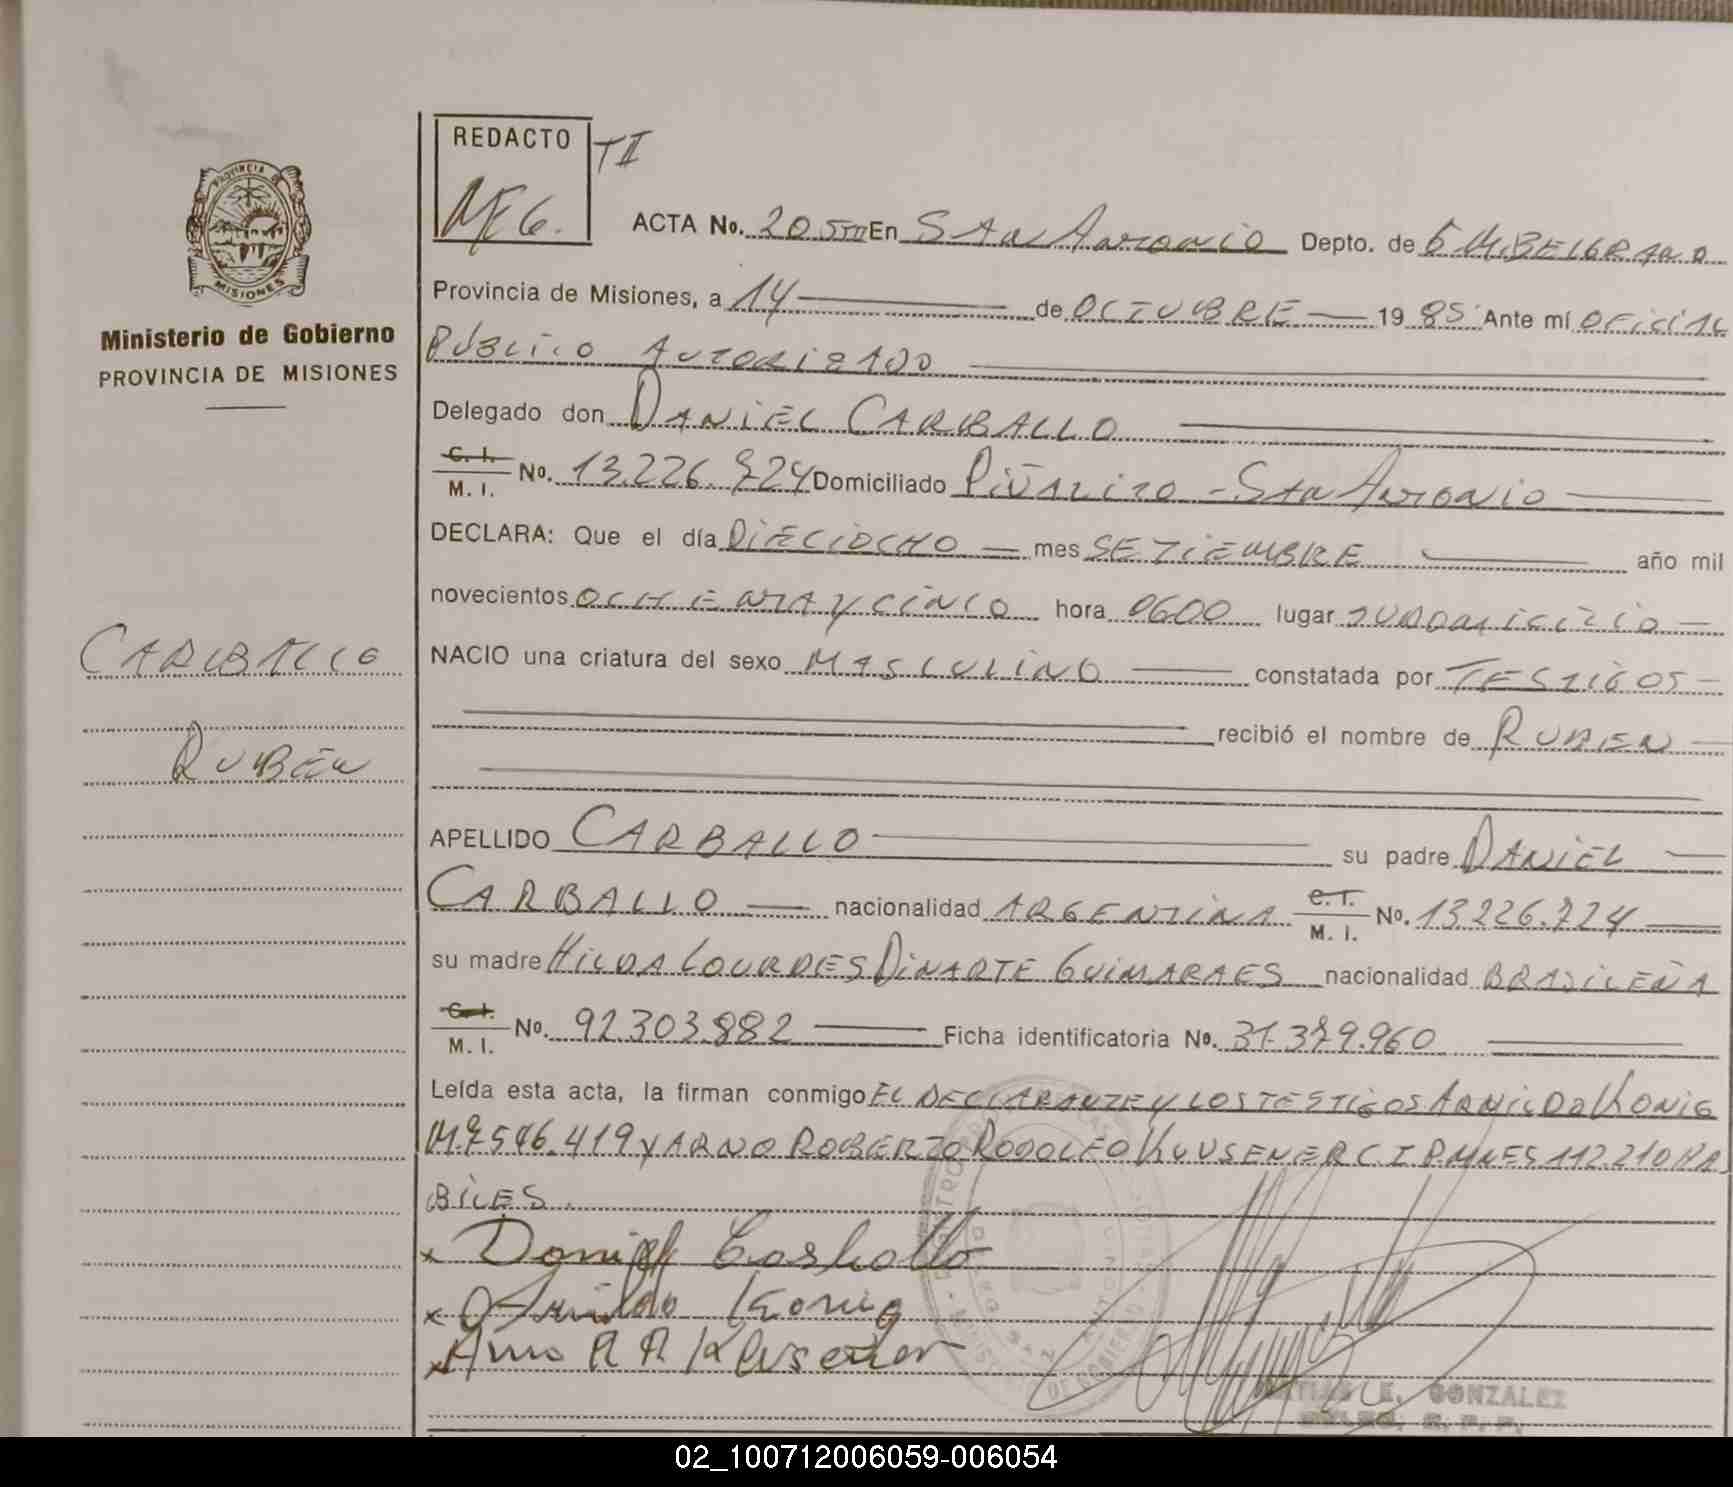 REDACTO
TI
MEG.
PROVINCIA DE
MISIONES
Ministerio de Gobierno
PROVINCIA DE MISIONES
ACTA No. 205 En San Antonio Depto. de G M. BELGRANO
Provincia de Misiones, a 14 de OCTUBRE 1985 Ante mí OFICIAL
PUBLICO AUTORIZADO
Delegado don DANIEL CARBALLO
C. I.
M. I.
No. 13.226.724 Domiciliado PiÑALiTO - San Antonio
DECLARA: Que el día DIECIOCHO mes SETIEMBRE año mil
novecientos OCHENTA Y CINCO hora 0600 lugar SU DOMICILIO
CARBALLO
NACIO una criatura del sexo MASCULINO constatada por TESTIGOS
recibió el nombre de RUBEN
RUBÉN
APELLIDO CARBALLO su padre DANIEL
CARBALLO nacionalidad ARGENTINA C. I. M. I. No. 13.226.724
su madre HILDA LOURDES DINARTE GUIMARAES nacionalidad BRASILEÑA
C. I.
M. I.
No. 92.303.882 Ficha identificatoria No. 31.379.960
Leída esta acta, la firman conmigo EL DECLARANTE Y LOS TESTIGOS ARNILDO KONIG
M. 7.546.419 Y ARNO ROBERTO RODOLFO KLUSENER C.I. P. MNES 112.210 HA
BILES.
x Daniel Carballo
x Arnildo Konig
x Arno R R Klusener
DE GOBIERNO
E. GONZALEZ
02_100712006059-006054